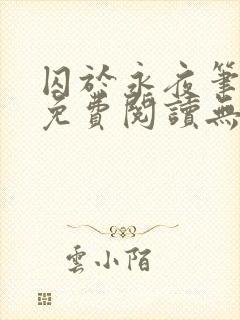 囚於永夜筆
免費閱讀無
雲小陌